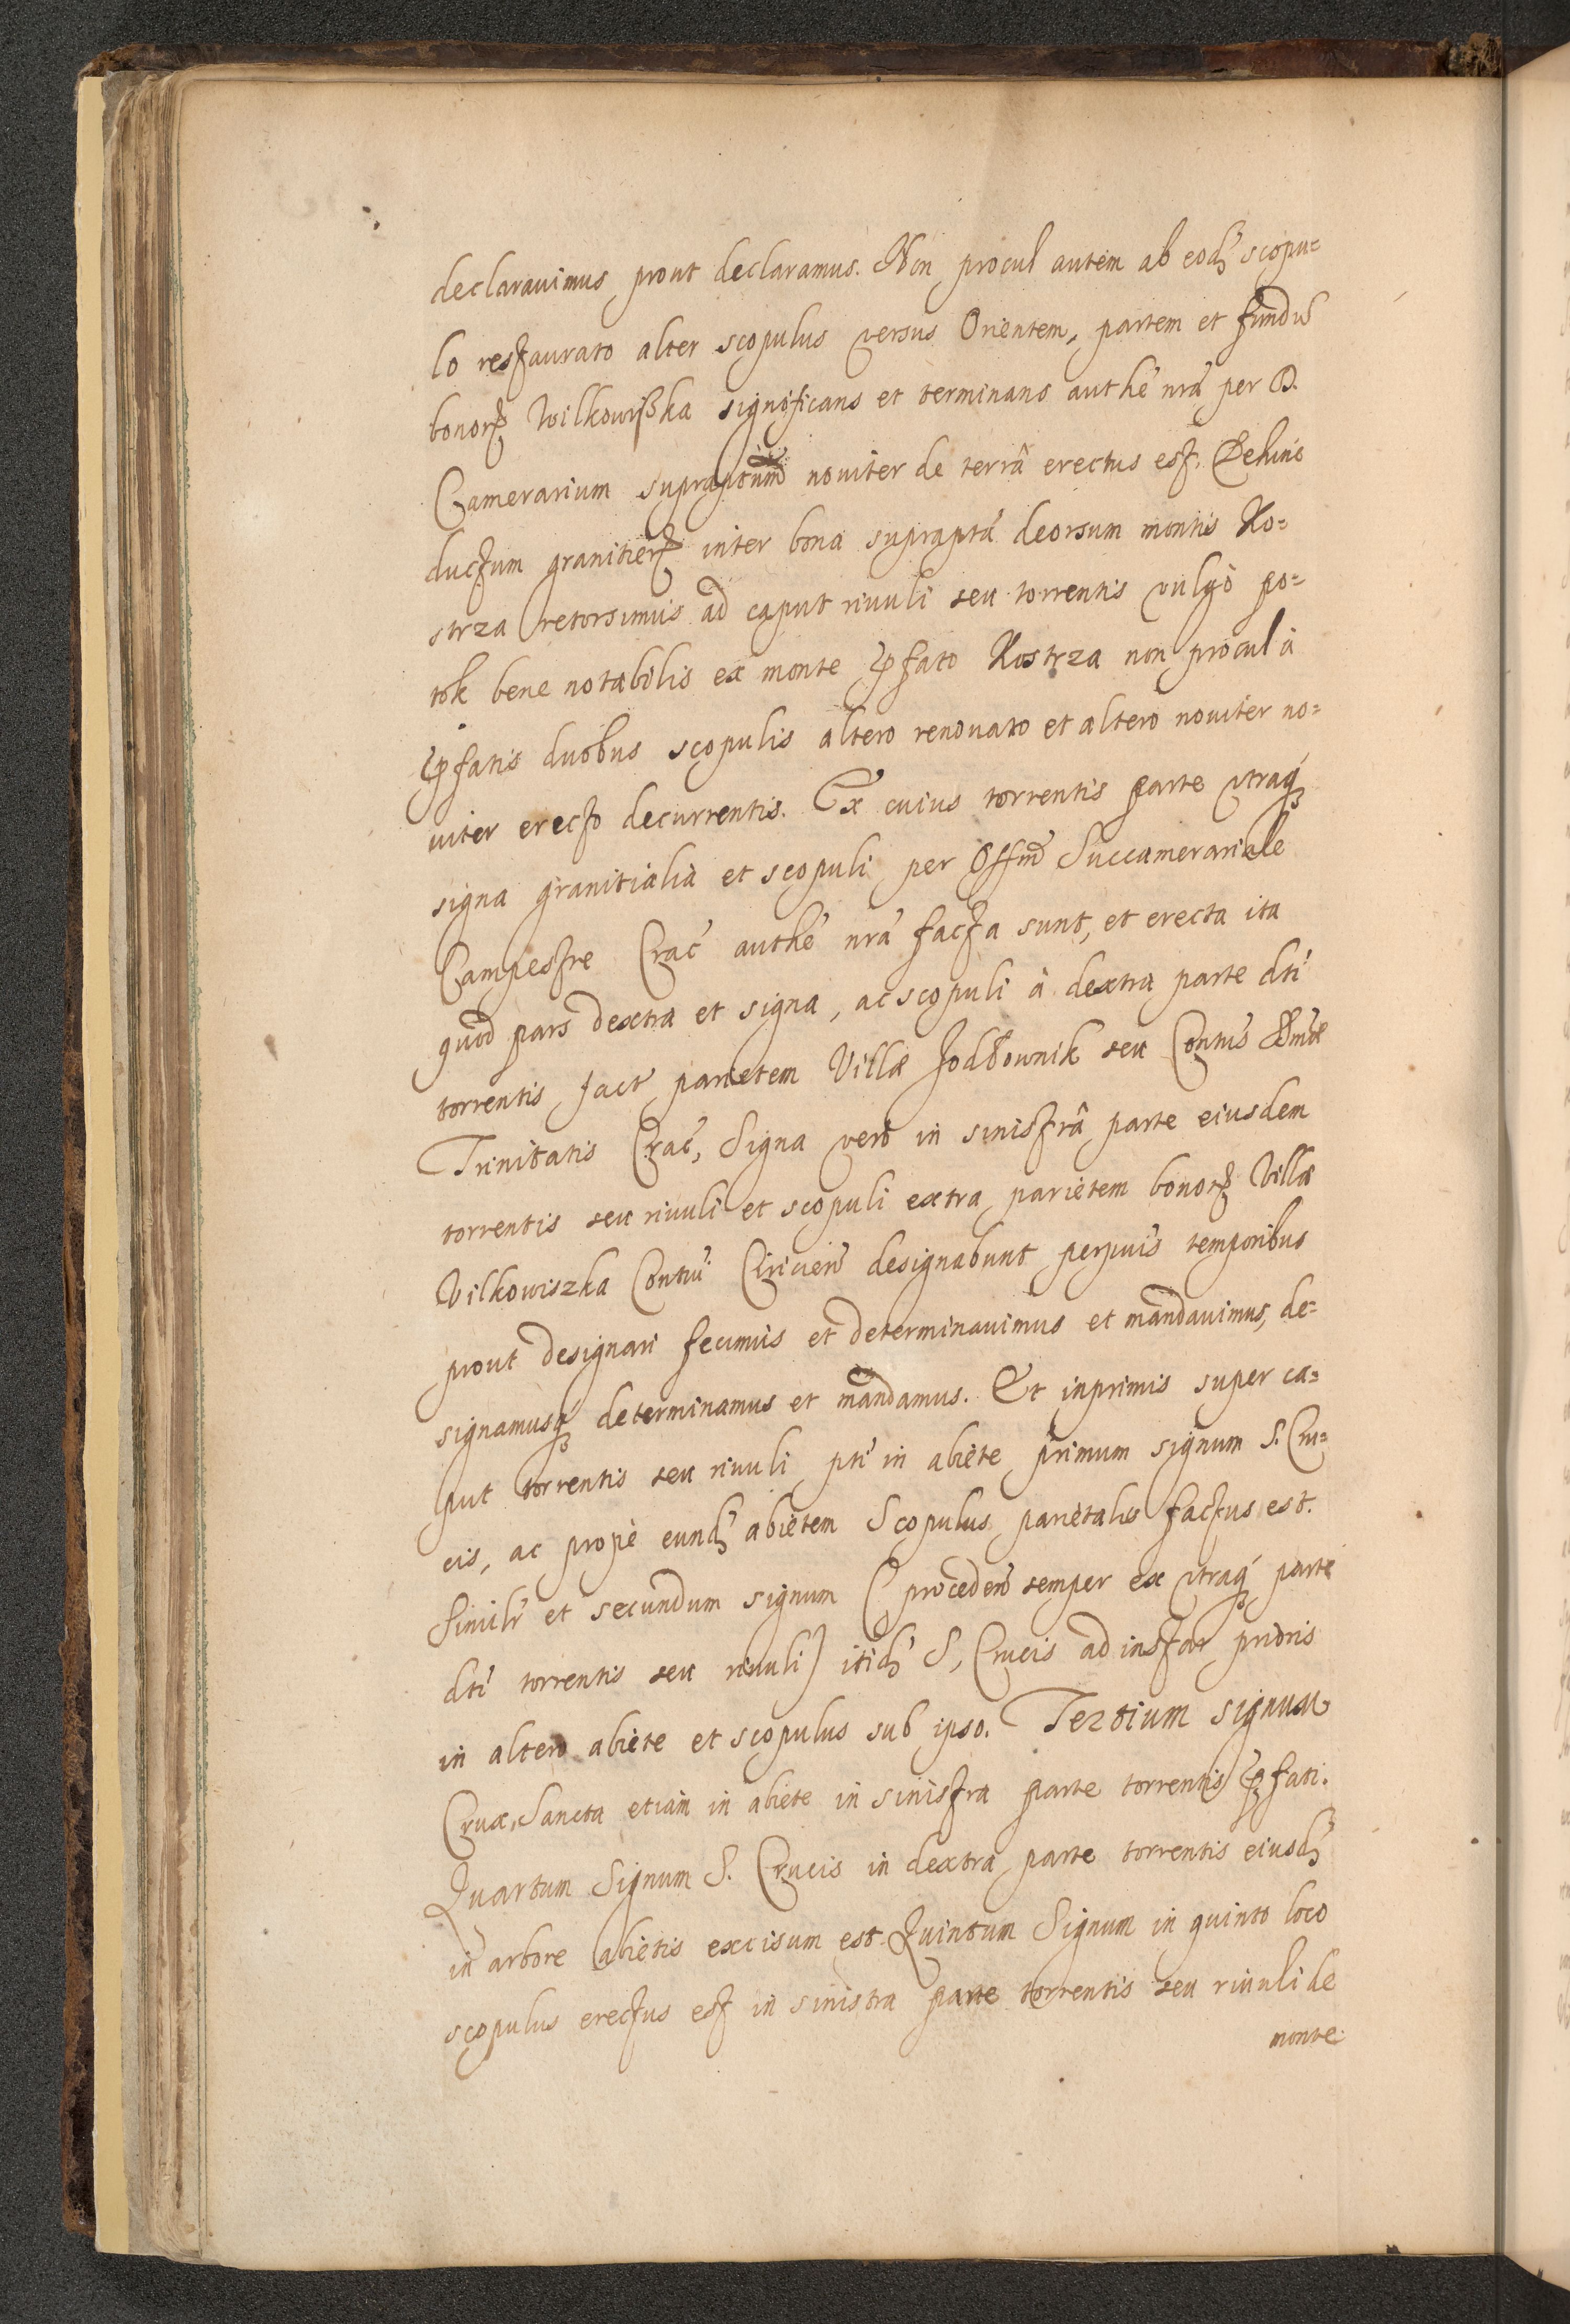 declarauimus prout declaramus. Non procul autem ab eodẽ scopu=
lo restaurato alter scopulus versus Orientem, partem et fundũ
bonorꝝ Wilkowißka significans et terminans authẽ nrã per D.
Camerarium supraptum nouiter de terrâ erectus est. Dehinc
ductum granicierꝝ inter bona suprapta deorsum montis Ko=
strza retorsimus ad caput riuuli seu torrentis vulgò po=
tok bene notabilis ex monte ꝓfato Kostrza non procul à
ꝓfatis duobus scopulis altero renouato et altero nouiter no=
uiter erecto decurrentis. Ex cuius torrentis parte vtraqꝫ
signa granitialia et scopuli per Offm̃ Succamerariale
Campestre Crac̃ authẽ nrã facta sunt, et erecta ita
quod pars dextra et signa, ac scopuli à dextra parte dti
torrentis fact parietem Villæ Jodłownik seu Contus SSmæ
Trinitatis Crac̃, Signa verò in sinistrâ parte eiusdem
torrentis seu riuuli et scopuli extra parietem bonorꝝ Villæ
Vilkowiszka Contui Ciricien̄ designabunt perpuis temporibus
prout designari fecimus et determinauimus et mandauimus, de=
signamusqꝫ determinamus et mandamus. Et inprimis super ca=
put torrentis seu riuuli pti in abiete primum signum S. Cru=
cis, ac propè eundẽ abietem Scopulus parietalis factus est.
Similr et secundum signum (procedeñ semper ex vtraqꝫ parte
dti torrentis seu riuuli) itidẽ S, Crucis ad instar prioris
in altero abiete et scopulus sub ipso. Tertium signum
Crux, Sancta etiam in abiete in sinistra parte torrentis ꝓfati.
Quartum Signum S. Crucis in dextra parte torrentis eiusdẽ
in arbore abietis excisum est. Quintum Signum in quinto loco
scopulus erectus est in sinistra parte torrentis seu riuuli de
monte